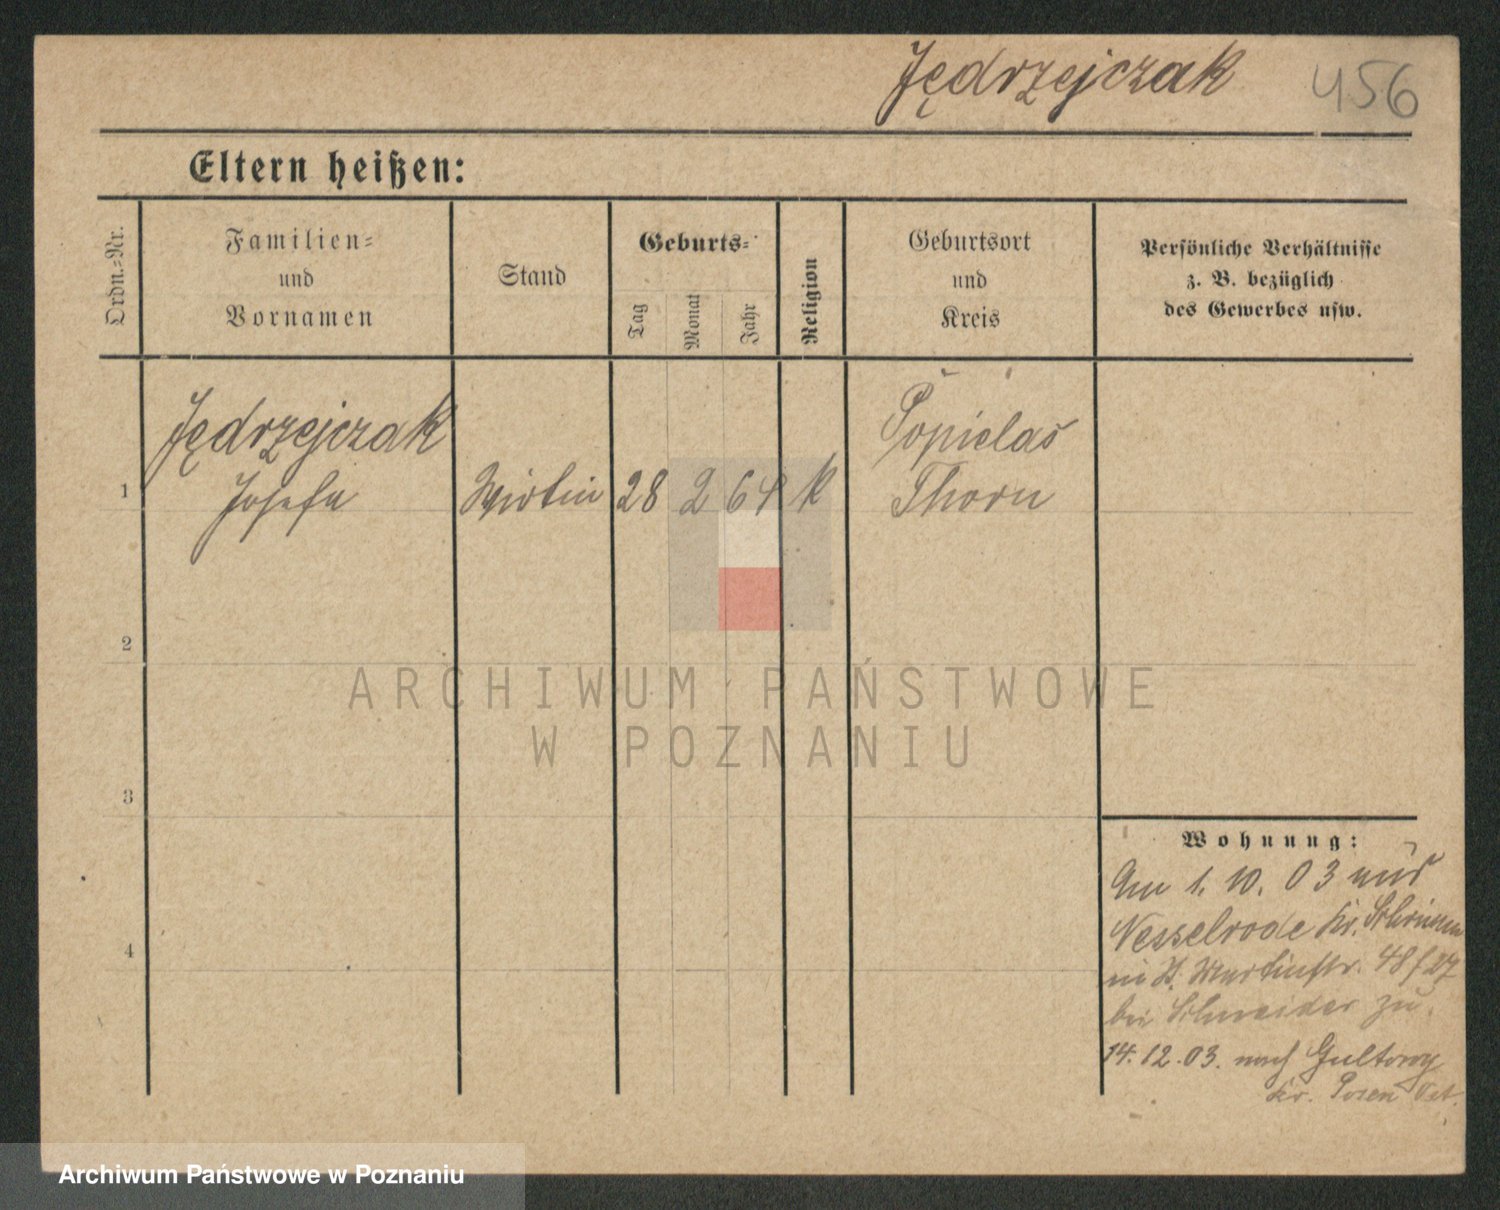 Jędrzejczak 456
Eltern heißen:
Ordn.-Nr.
Familien-
und
Vornamen
Stand
Geburts-
Tag
Monat
Jahr
Religion
Geburtsort
und
Kreis
Persönliche Verhältnisse
z. B. bezüglich
des Gewerbes usw.
Jędrzejczak
1 Josefa Wirtin 28 2 64 k
Thorn
2
3
4
Wohnung:
Am 1. 10. 03 aus
Nesselrode Kr. Schrimm
in St. Martinstr. 48
bei Schneider zu.
14. 12. 03. nach Gultowy
Kr. Posen Ost.
ARCHIWUM PAŃSTWOWE
W POZNANIU
Archiwum Państwowe w Poznaniu